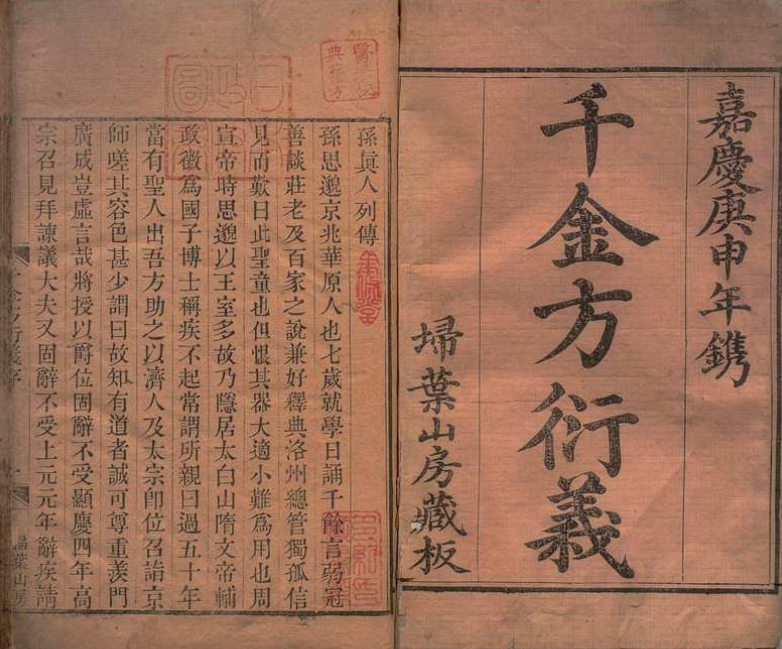 嘉慶庚申年鐫
千金方衍義
埽葉山房藏板
孫眞人列傳
孫思邈京兆華原人也七歲就學日誦千餘言弱冠
善談莊老及百家之說兼好釋典洛州總管獨孤信
見而歎曰此聖童也但恨其器大適小難爲用也周
宣帝時思邈以王室多故乃隱居太白山隋文帝輔
政徵爲國子博士稱疾不起常謂所親曰過五十年
當有聖人出吾方助之以濟人及太宗卽位召詣京
師嗟其容色甚少謂曰故知有道者誠可尊重羨門
廣成豈虛言哉將授以爵位固辭不受顯慶四年高
宗召見拜諫議大夫又固辭不受上元元年辭疾請
千金方衍義序
一
埽葉山房